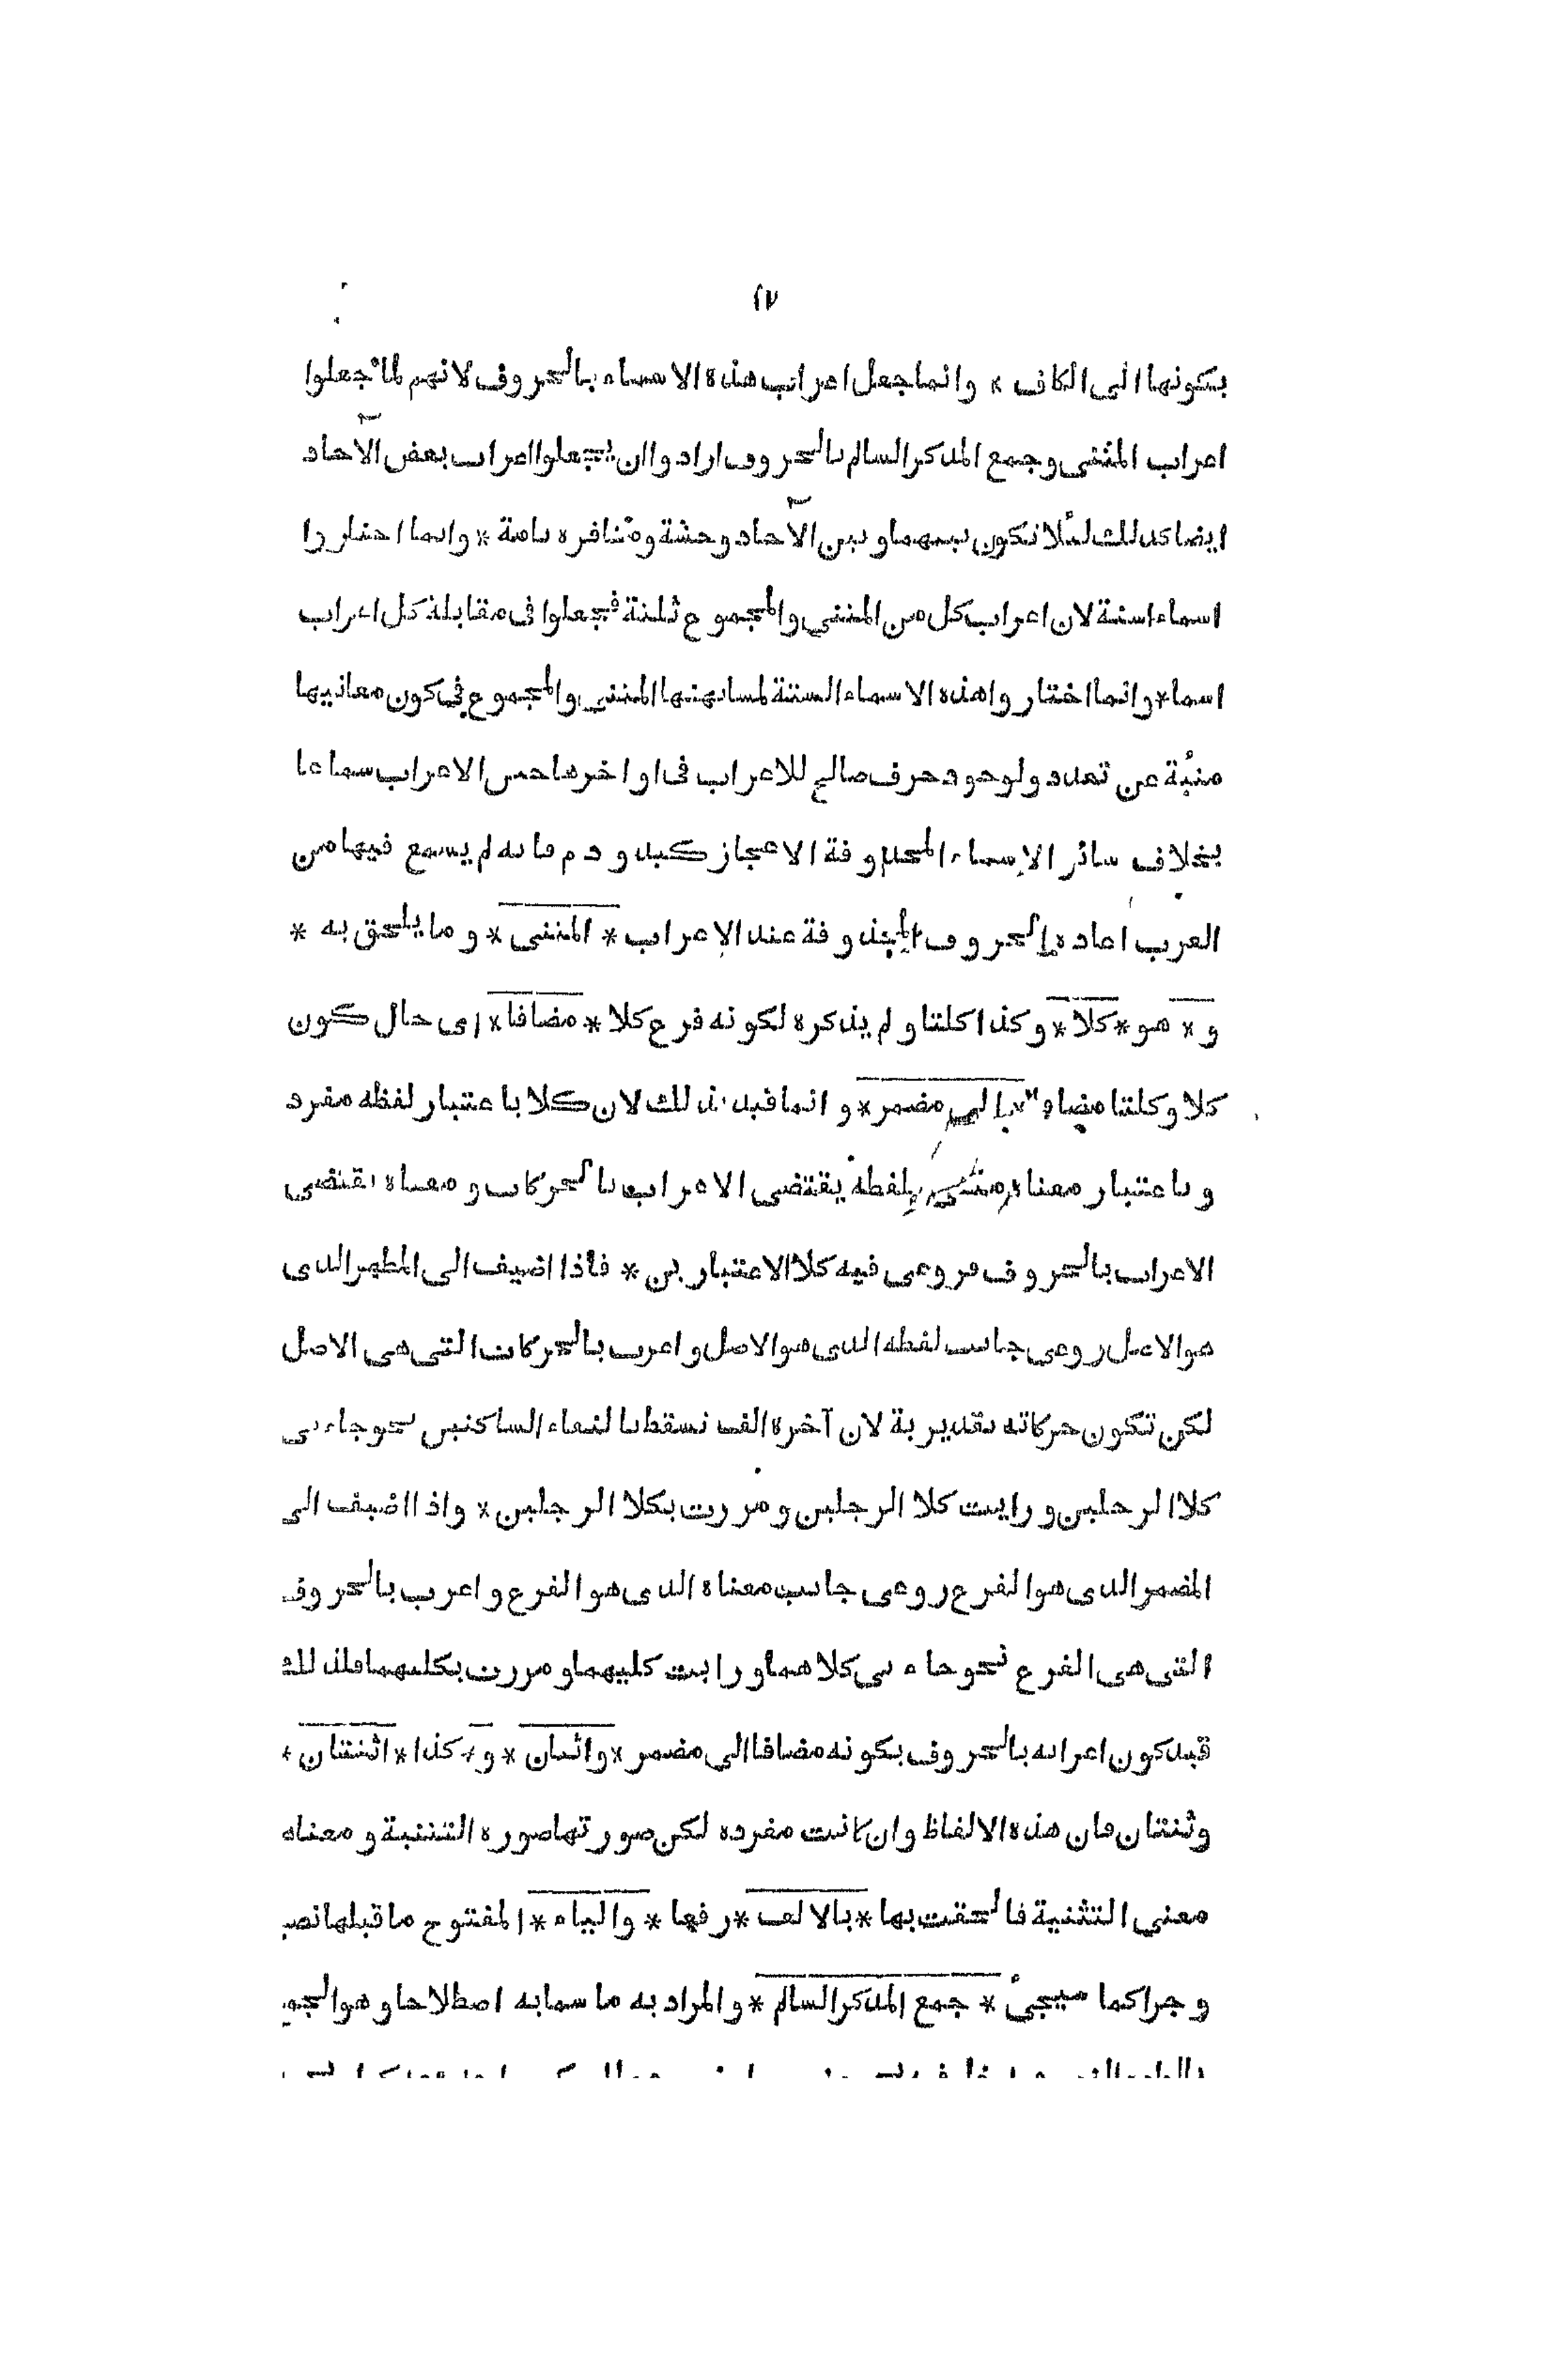 ٤٧
بكونها الى الكاف * وانما جعل اعراب هذه الاسماء بالحروف لانهم لما جعلوا
اعراب المثنى وجمع المذكر السالم بالحروف ارادوا ان يجعلوا اعراب بعض الآحاد
ايضا كذلك لئلا تكون بينهما وبين الآحاد وحشة ومنافرة تامة * وانما اختاروا
اسماء ستة لان اعراب كل من المثنى والمجموع ثلثة فجعلوا فى مقابلة كل اعراب
اسما * وانما اختاروا هذه الاسماء الستة لمشابهتها المثنى والمجموع فى كون معانيها
منبئة عن تعدد ولوجود حرف صالح للاعراب فى اواخرها حين الاعراب سماعا
بخلاف سائر الاسماء المحذوفة الاعجاز كيد ودم فانه لم يسمع فيها من
العرب اعادة الحروف المحذوفة عند الاعراب * المثنى * وما يلحق به *
و * هو * كلا * وكذا كلتا ولم يذكره لكونه فرع كلا * مضافا * اى حال كون
كلا وكلتا مضافا * الى مضمر * وانما قيد بذلك لان كلا باعتبار لفظه مفرد
وباعتبار معناه مثنى بلفظه يقتضى الاعراب بالحركات ومعناه يقتضى
الاعراب بالحروف فروعى فيه كلا الاعتبارين * فاذا اضيف الى المظهر الذى
هو الاصل روعى جانب لفظه الذى هو الاصل واعرب بالحركات التى هى الاصل
لكن تكون حركاته تقديرية لان آخره الف تسقط بالتقاء الساكنين نحو جاءنى
كلا الرجلين ورايت كلا الرجلين ومررت بكلا الرجلين * واذا اضيف الى
المضمر الذى هو الفرع روعى جانب معناه الذى هو الفرع واعرب بالحروف
التى هى الفرع نحو جاءنى كلاهما ورايت كليهما ومررت بكليهما فلذلك
قيد كون اعرابه بالحروف بكونه مضافا الى مضمر * واثنان * و * كذا * اثنتان *
وثنتان فان هذه الالفاظ وان كانت مفردة لكن صورتها صورة التثنية ومعناه
معنى التثنية فالحقت بها * بالالف * رفعا * والياء * المفتوح ما قبلها نصب
وجرا كما سيجئ * جمع المذكر السالم * والمراد به ما سما به اصطلاحا وهو الجمع